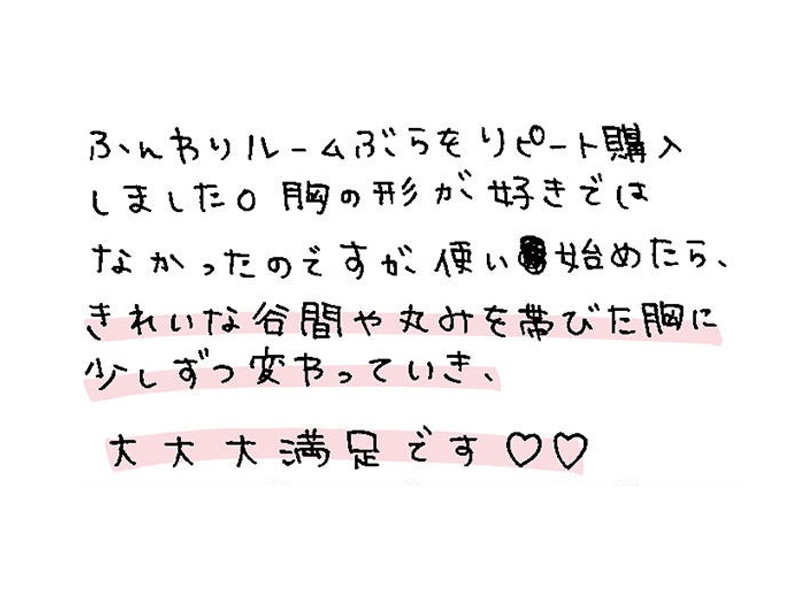 ふんわりルームぶらをリピート購入
しました。胸の形が好きでは
なかったのですが、使い始めたら、
きれいな谷間や丸みを帯びた胸に
少しずつ変わっていき、
大大大満足です♡♡